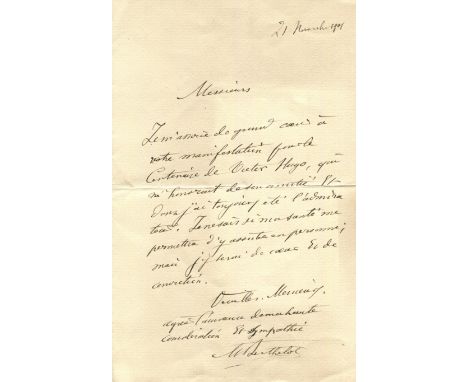 21 Novembre 1901
Messieurs
Je m'associe de grand cœur à
votre manifestation pour le
Centenaire de Victor Hugo, qui
m'honorait de son amitié Et
dont j'ai toujours été l'admira
teur. Je ne sais si ma santé me
permettra d'y assister en personne;
mais j'y serai de cœur Et de
conviction.
Veuillez, Messieurs,
agréer l'assurance de ma haute
considération Et sympathie
M Berthelot